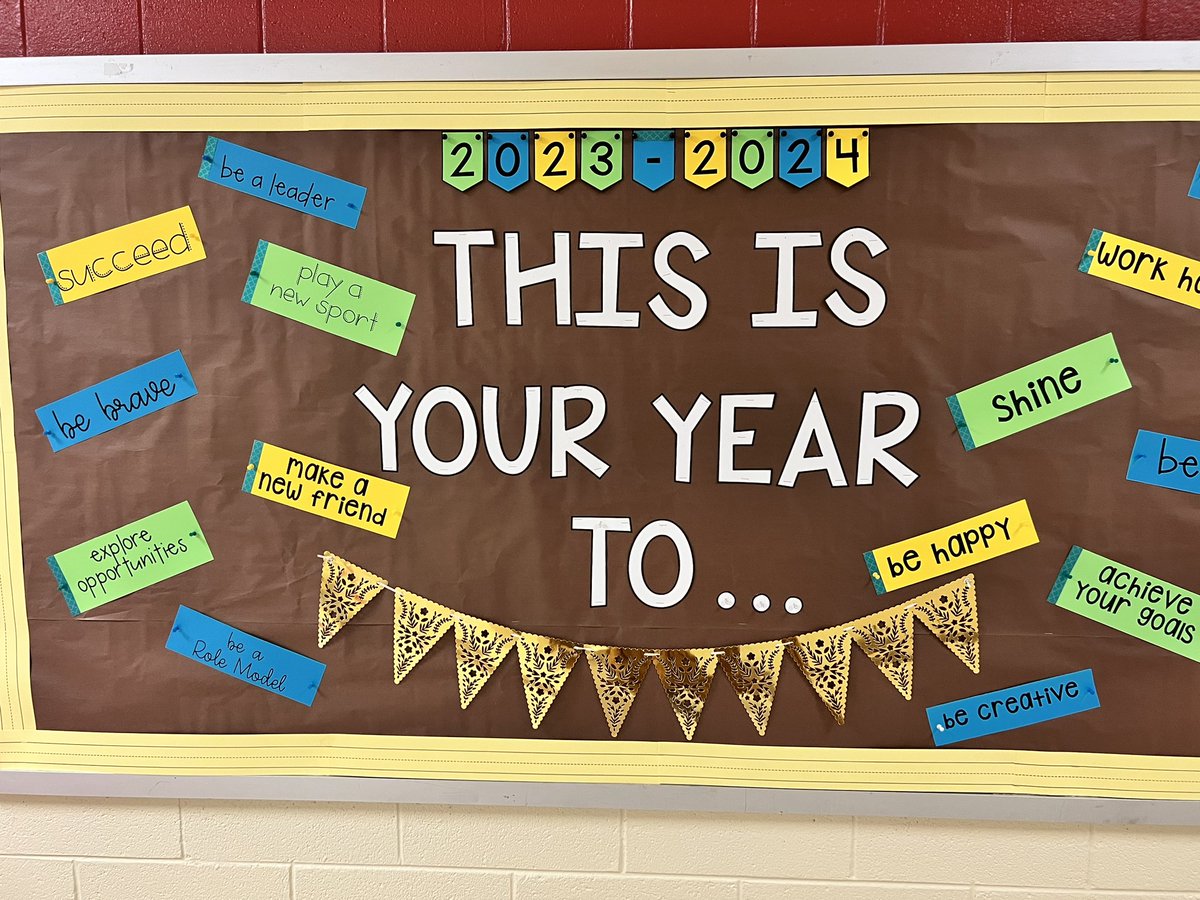 2023-2024
THIS IS
YOUR YEAR
TO...
be a leader
succeed
play a
new sport
be brave
make a
new friend
explore
opportunities
be a
Role Model
work
Shine
be
be happy
achieve
your goals
be creative